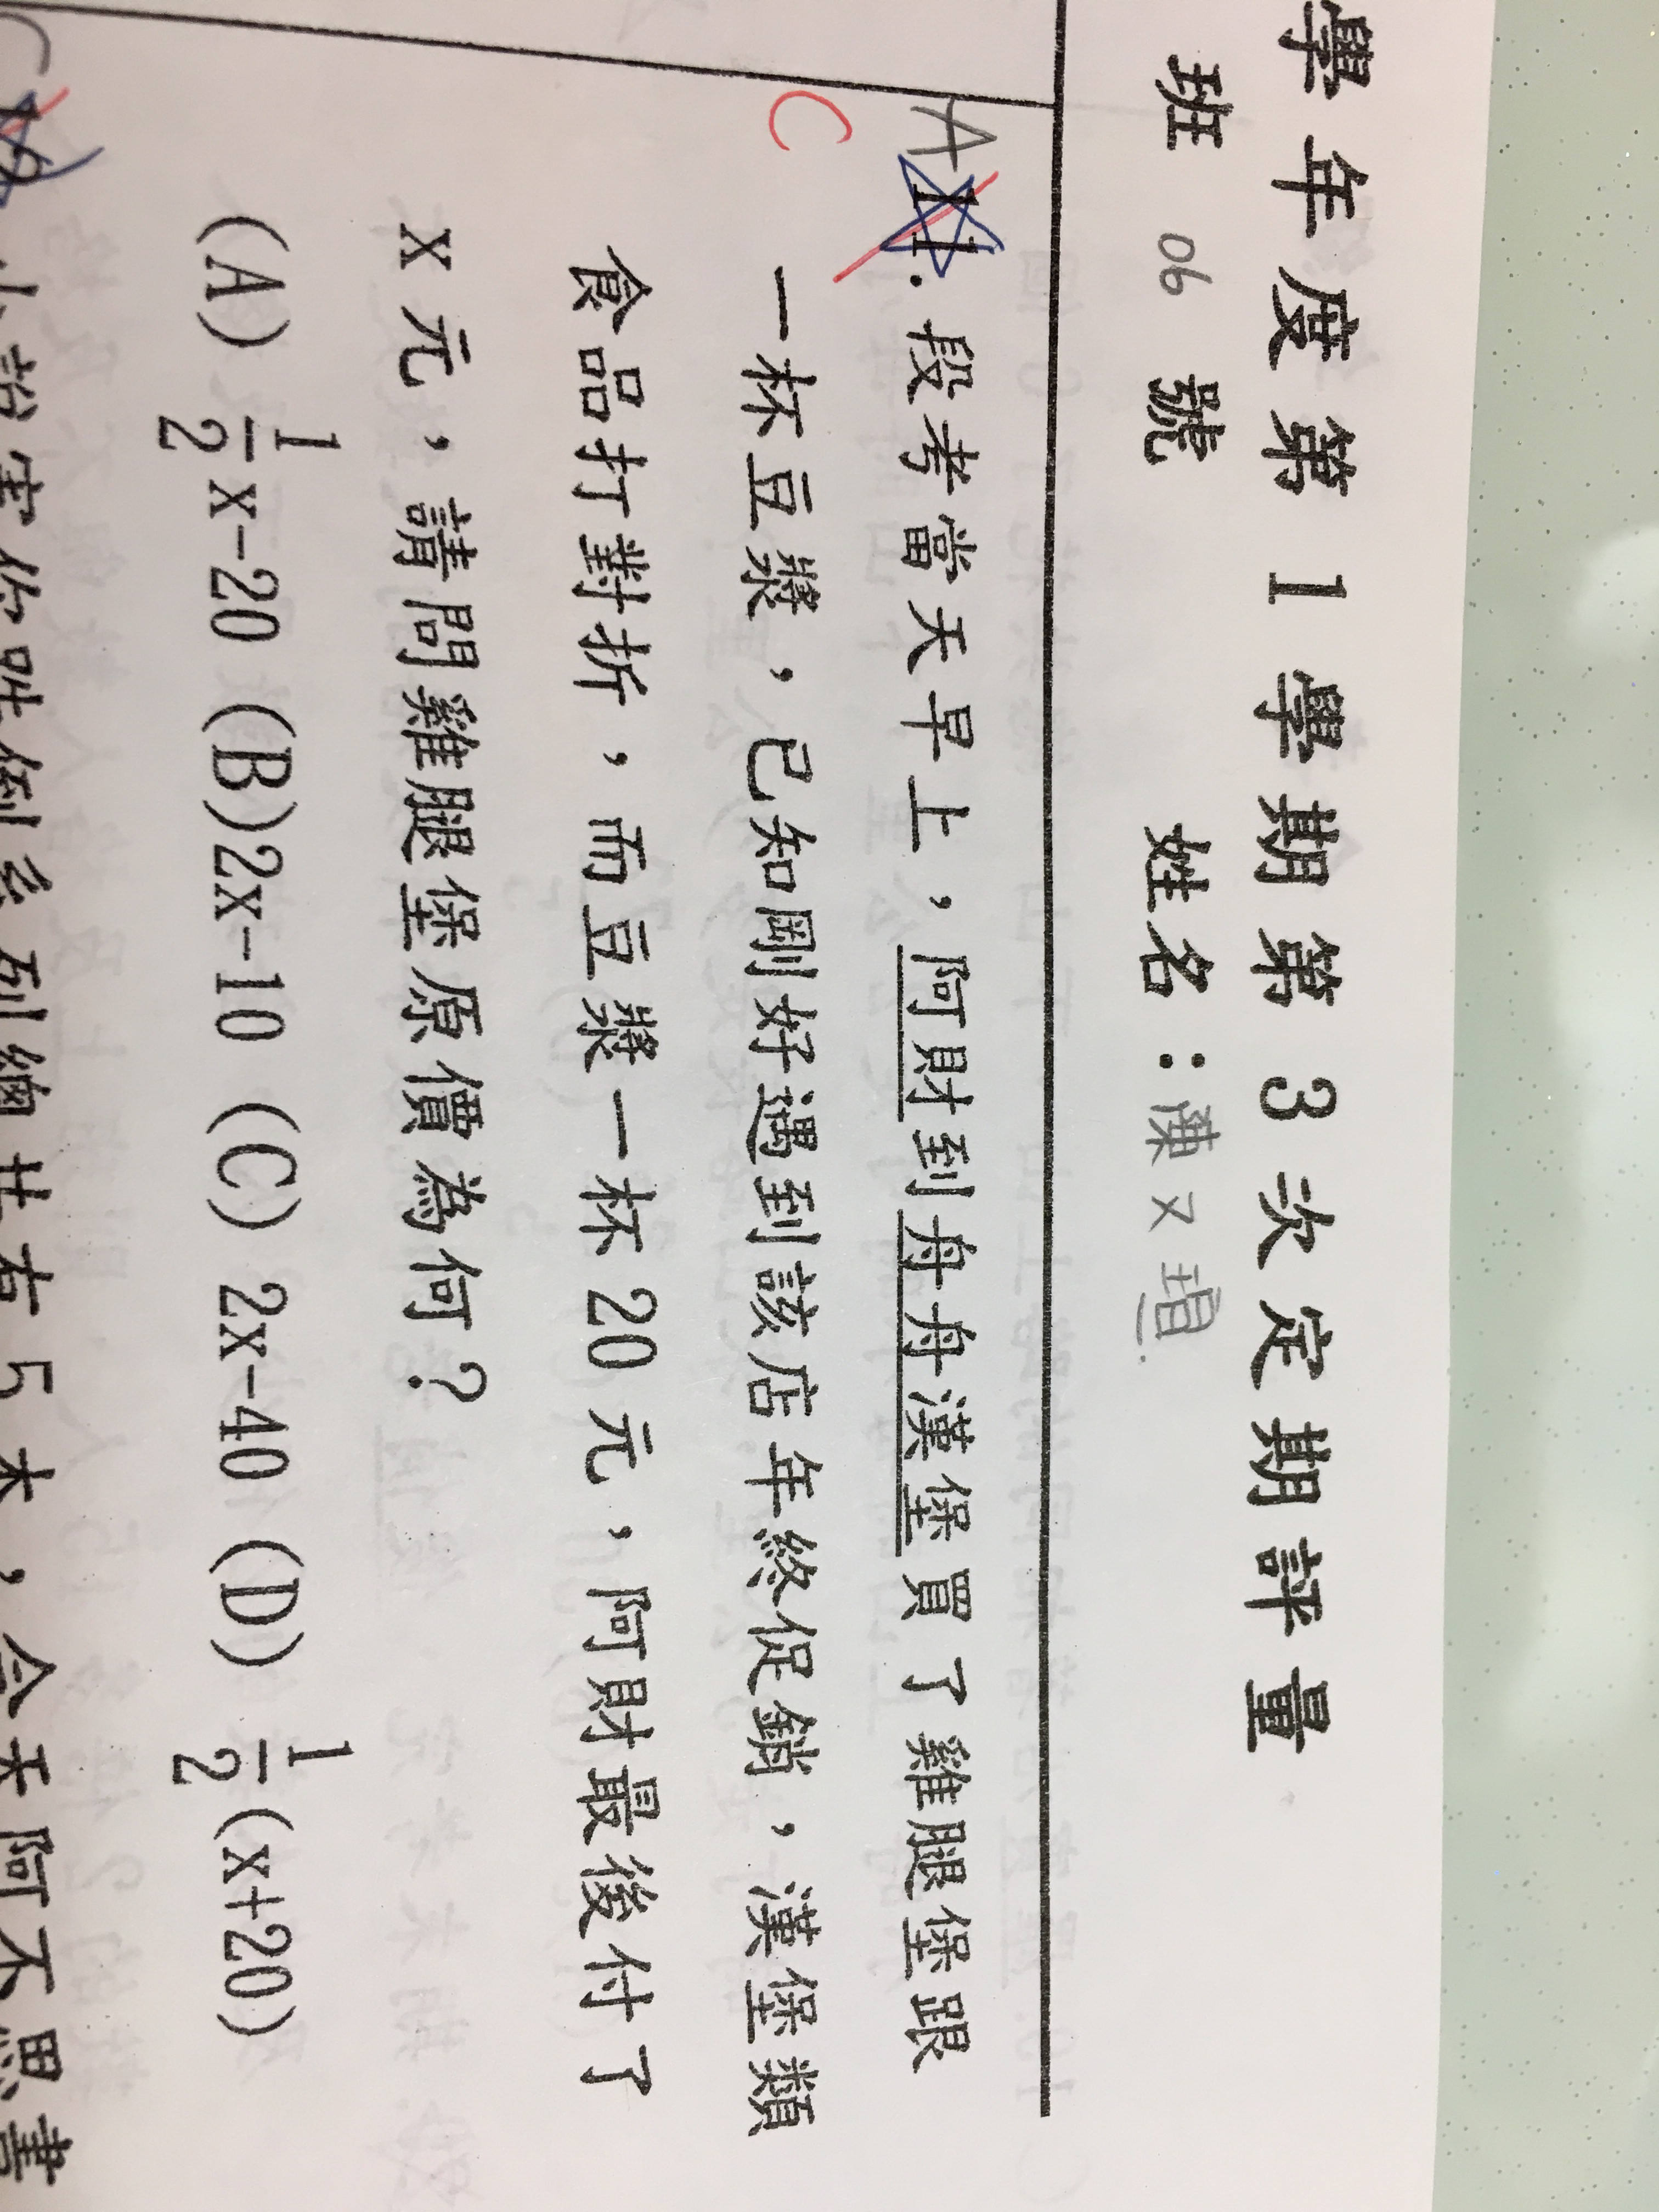 學年度第 1 學期第 3 次定期評量
班 06 號 姓名：陳又瑄
A 11. 段考當天早上，阿財到舟舟漢堡買了雞腿堡跟
C 一杯豆漿，已知剛好遇到該店年終促銷，漢堡類
食品打對折，而豆漿一杯 20 元，阿財最後付了
x 元，請問雞腿堡原價為何？
(A) 1/2 x-20 (B)2x-10 (C) 2x-40 (D) 1/2 (x+20)
C 12
共有 5 本，今天阿不思書